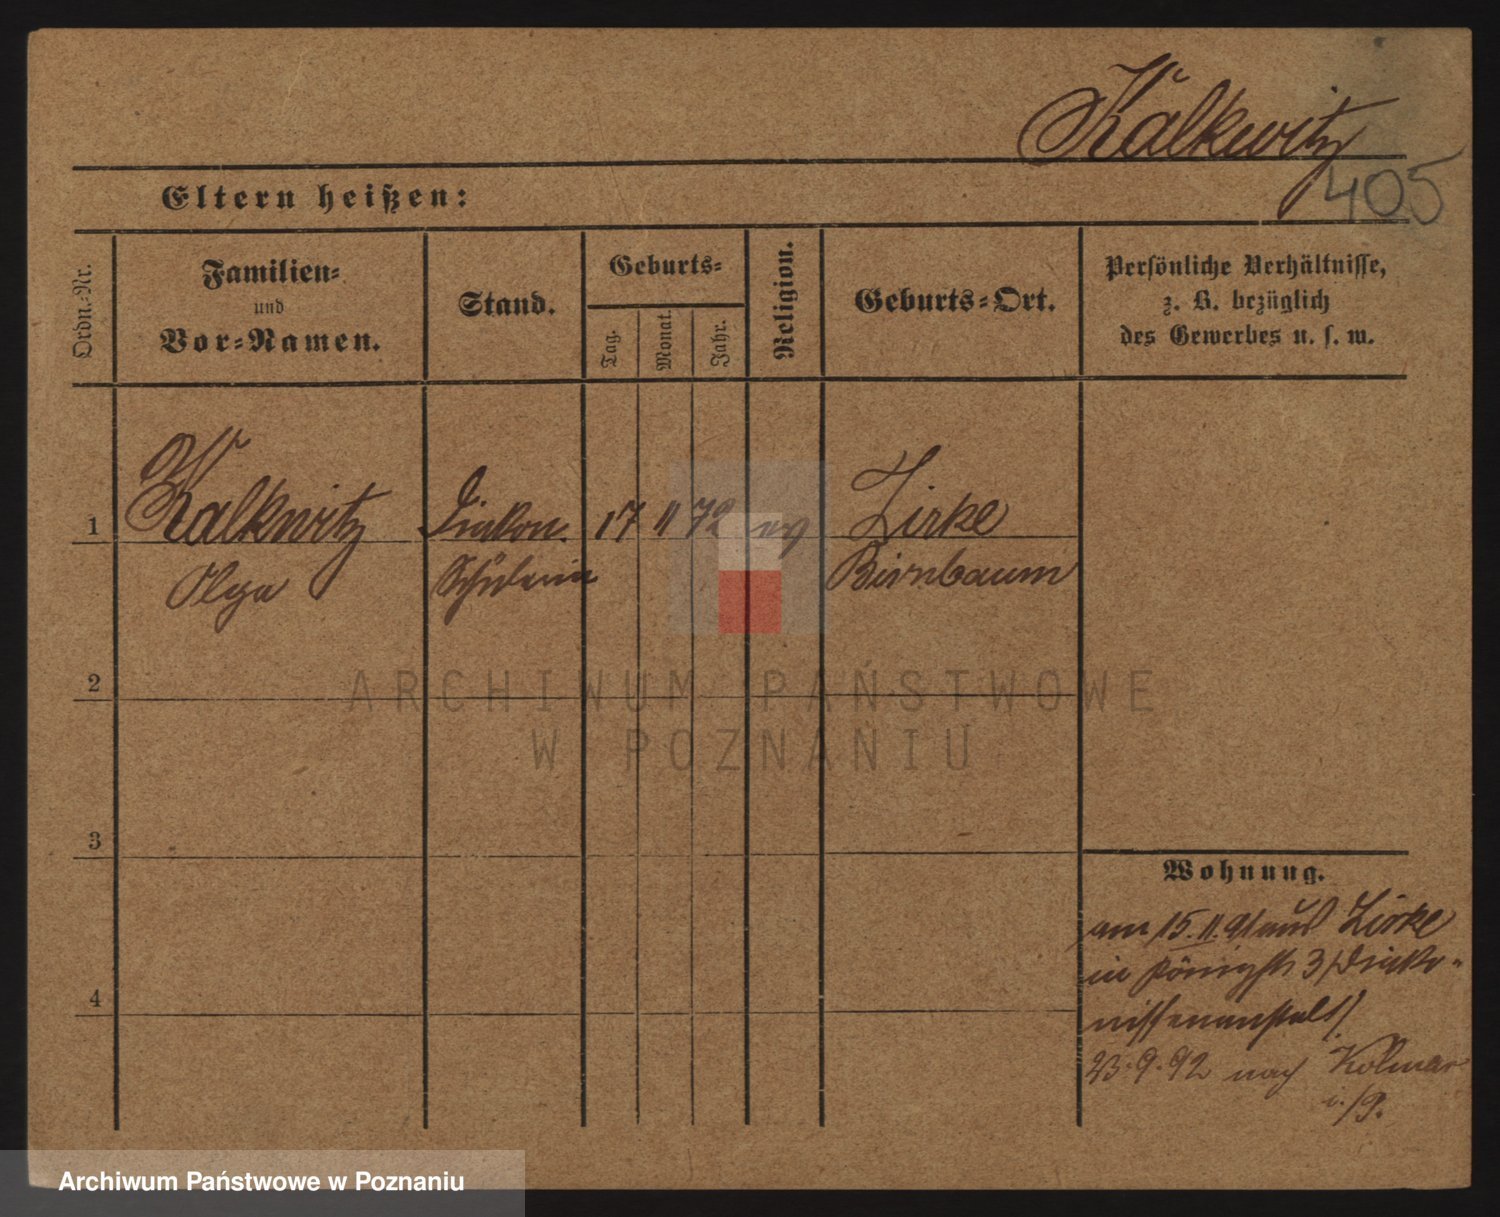 Kalkwitz
405
Eltern heißen:
Ordn.=Nr.
Familien=
und
Vor=Namen.
Stand.
Geburts=
Tag.
Monat.
Jahr.
Religion.
Geburts=Ort.
Persönliche Verhältnisse,
z. B. bezüglich
des Gewerbes u. s. w.
1 Kalkwitz Diakon. 17 11 72 ev Zirke
Olga Schülerin Birnbaum
2
ARCHIWUM PAŃSTWOWE
W POZNANIU
3
Wohnung.
am 15.11.91 aus Zirke
in Königstr 3 /Diako-
4
nissenanstalt/
23.9.92 nach Kolmar
i./P.
Archiwum Państwowe w Poznaniu